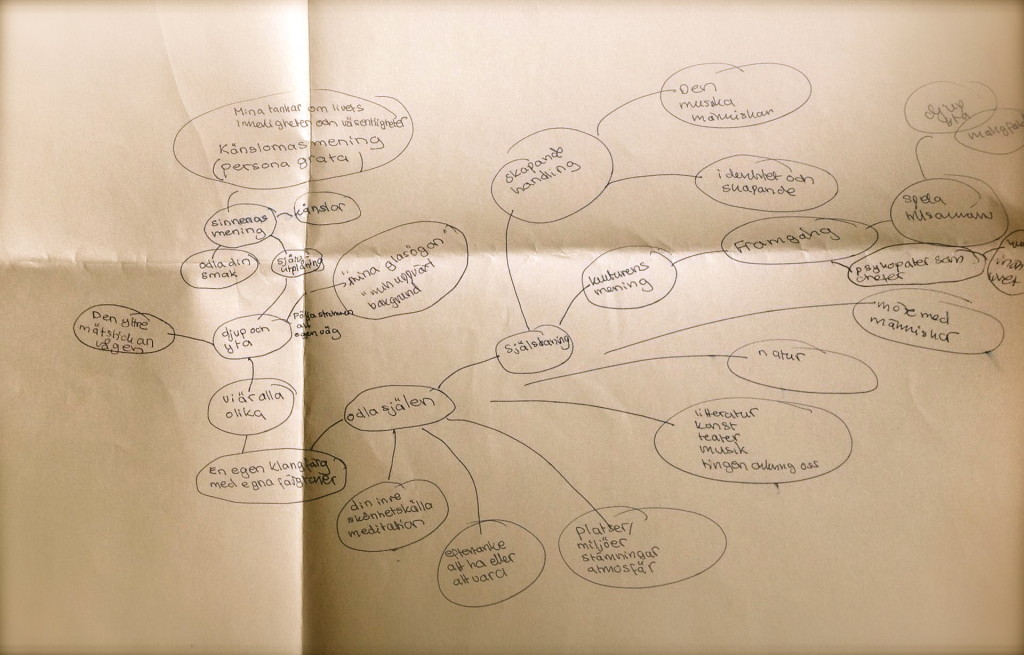 Mina tankar om livets
innerligheter och väsentligheter
Känslornas mening
(persona grata)
sinnenas
mening
känslor
odla din
smak
själv
utplåning
"mina glasögon"
min uppväxt
bakgrund
Den yttre
mätstickan
vägen
djup och
yta
att
egen väg
vi är alla
olika
En egen klangfärg
med egna färgtoner
odla själen
din inre
skönhetskälla
meditation
eftertanke
att ha eller
att vara
platser/
miljöer
stämningar
atmosfär
skapande
handling
Den
musiska
människan
identitet och
skapande
kulturens
mening
Framgång
spela
tillsammans
djup
yta
psykopater som
möte med
människor
natur
litteratur
konst
teater
musik
tingen omkring oss